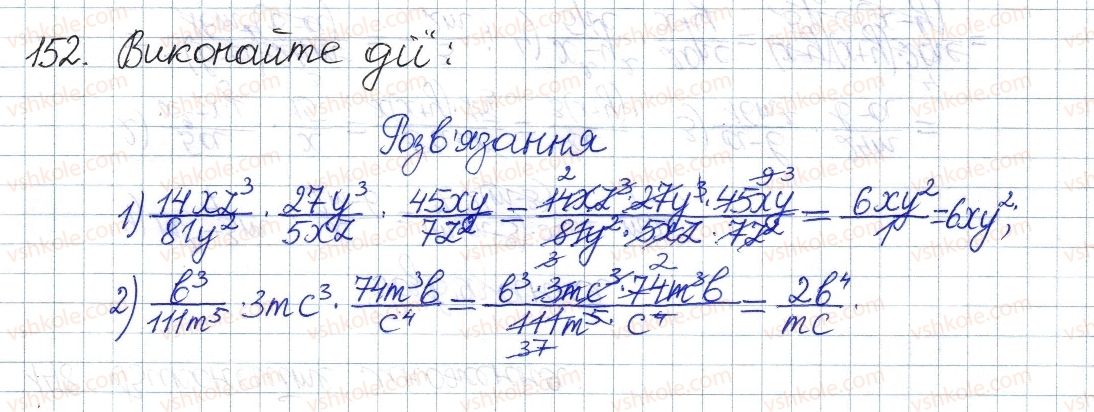 152. Виконайте дії:
Розв'язання
1) 14xz³/81y² · 27y³/5xz · 45xy/7z² = 14xz³·27y³·45xy/81y²·5xz·7z² = 6xy²/1 = 6xy²;
2) b³/111m⁵ · 3mc³ · 74m³b/c⁴ = b³·3mc³·74m³b/111m⁵·c⁴ = 2b⁴/mc.